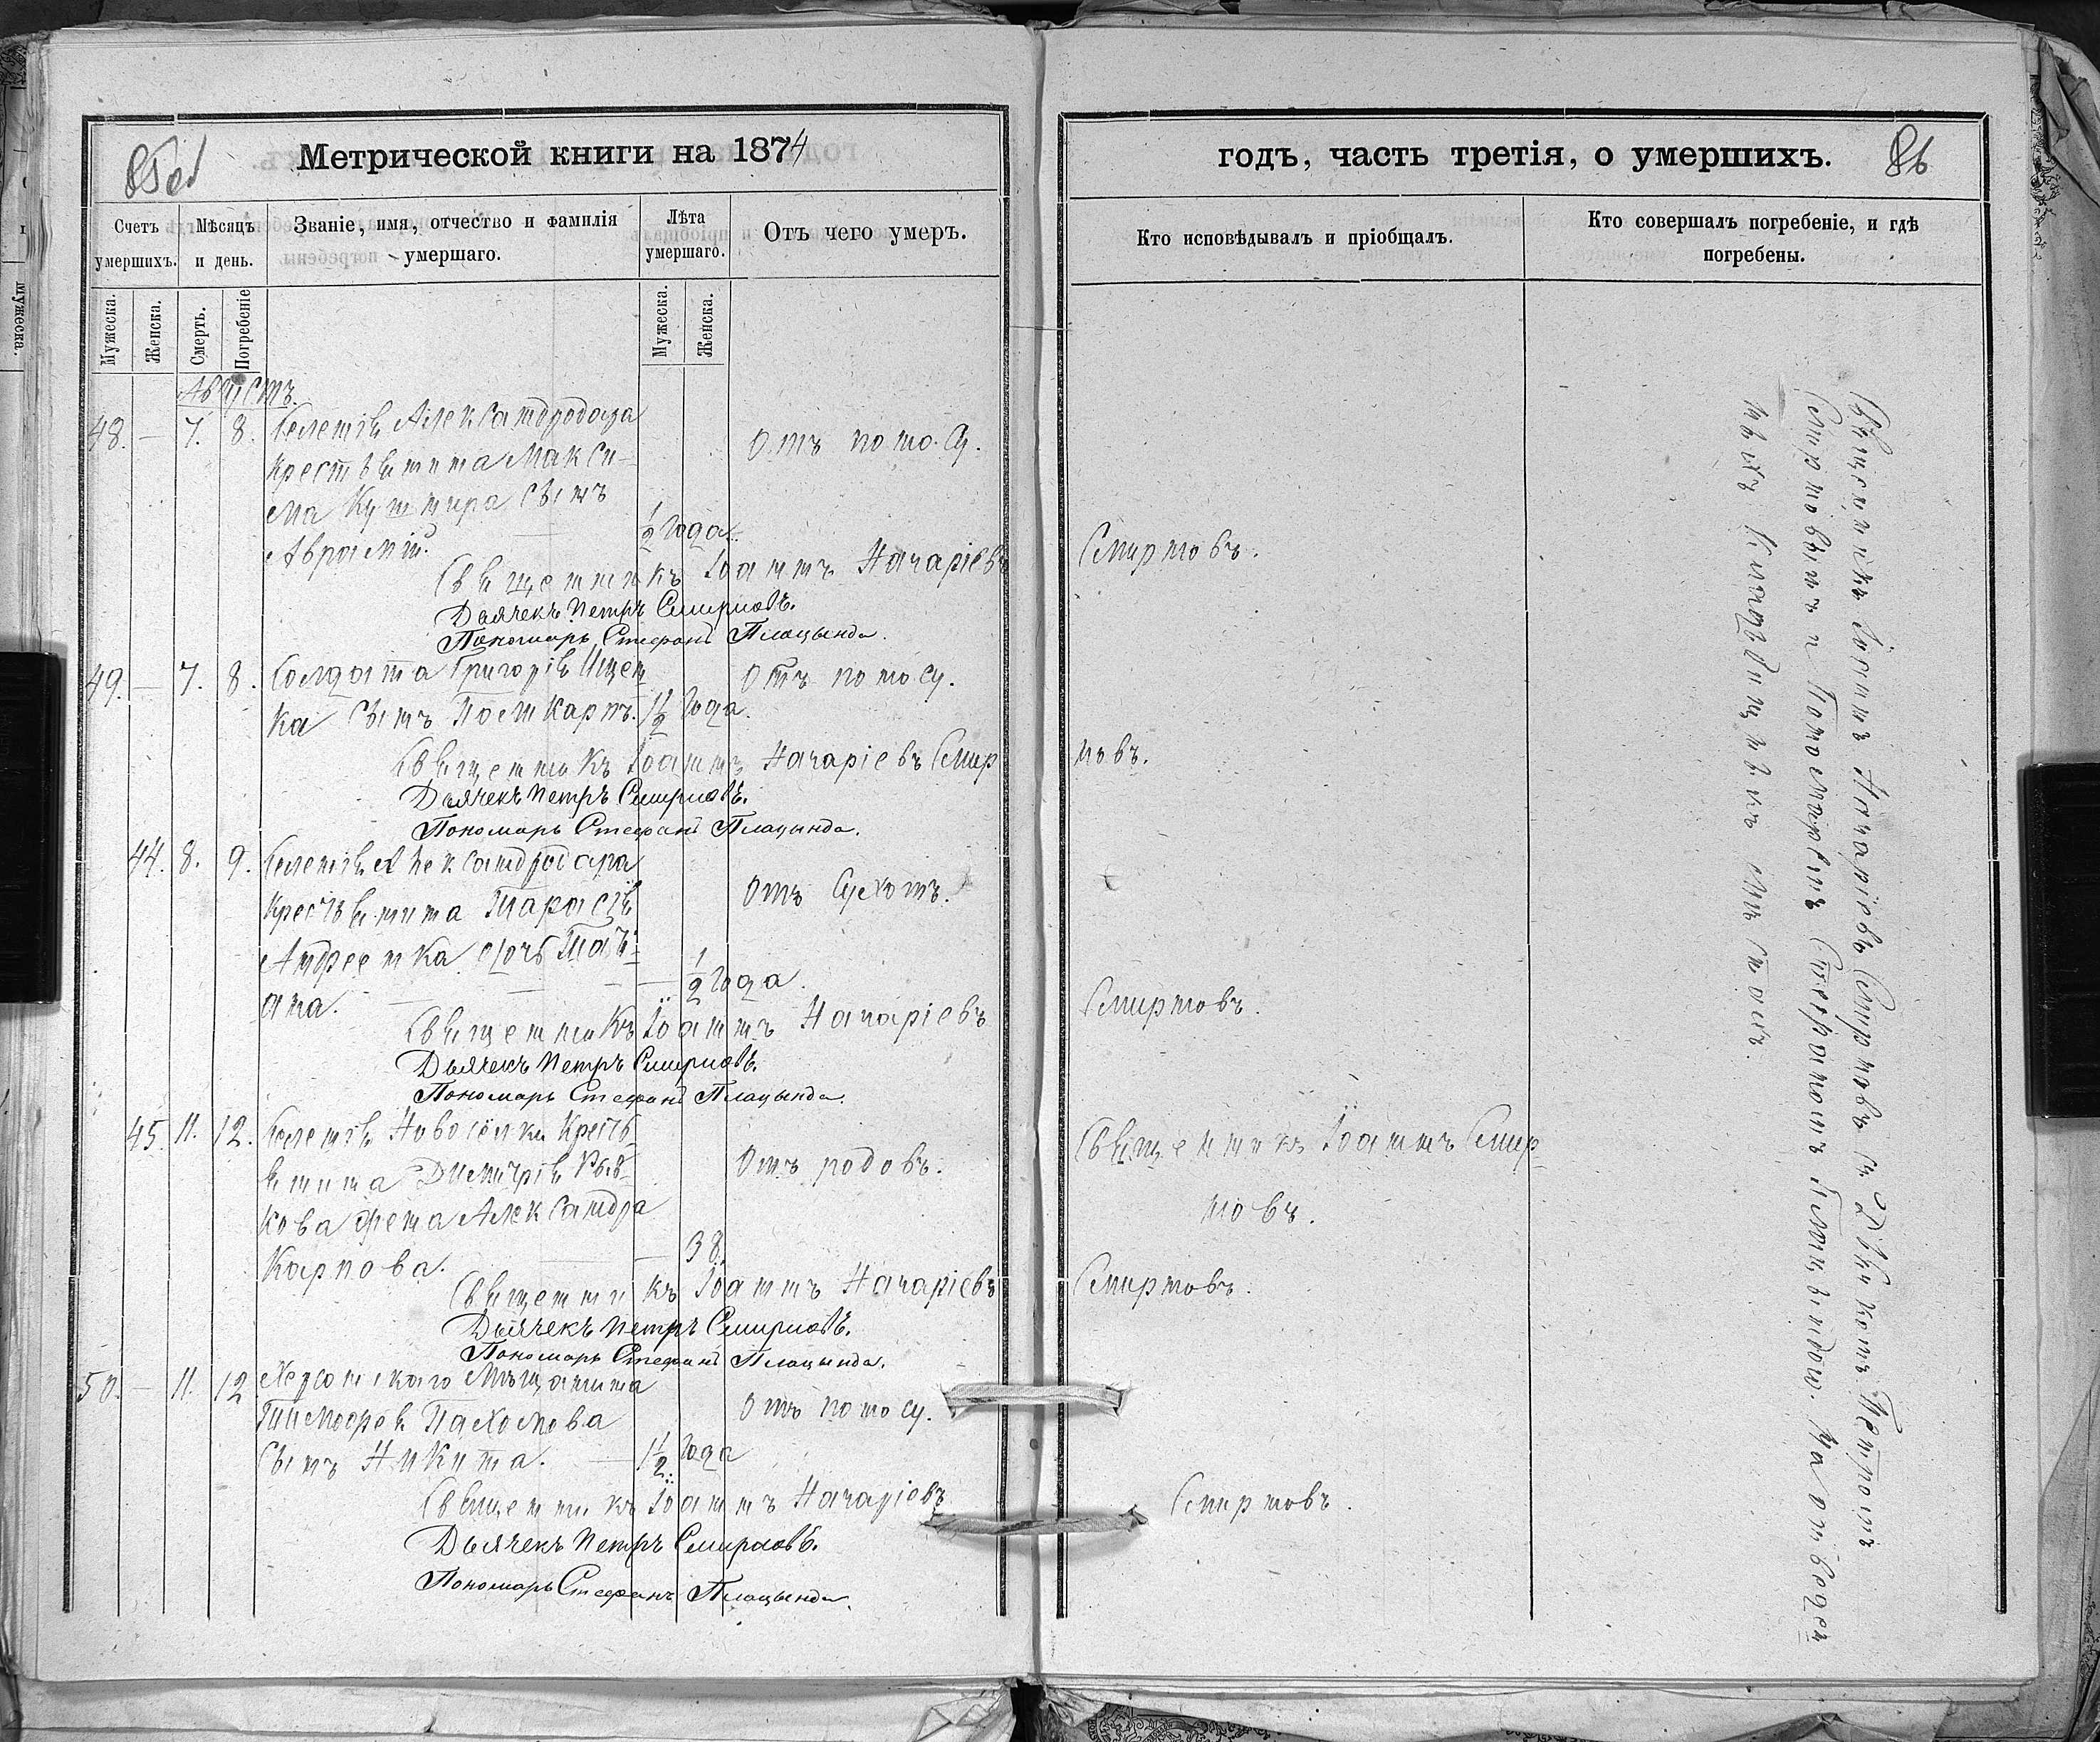 85об
Метрической книги на 1874
Счетъ умершихъ.
Мѣсяцъ и день.
Званіе, имя, отчество и фамилія умершаго.
Лѣта умершаго.
Отъ чего умеръ.
Мужеска.
Женска.
Смерть.
Погребеніе
Мужеска.
Женска.
Августъ.
48. — 7. 8. Селенія Александродара
Крестьянина Макси-
ма Кушнира сынъ
Аврамій.
½ года.
Отъ поносу.
Священникъ Іоаннъ Назаріевъ
Дьячекъ Петръ Смирновъ.
Пономарь Стефанъ Плацында.
49. — 7. 8. Солдата Григорія Ищен
ка сынъ Поликарпъ. 1½ года.
Отъ поносу.
Священникъ Іоаннъ Назаріевъ Смир
Дьячекъ Петръ Смирновъ.
Пономарь Стефанъ Плацында.
44. 8. 9. Селенія Александродара
Крестьянина Тарасія
Андреенка дочь Тать-
яна.
½ года.
Отъ сухотъ.
Священникъ Іоаннъ Назаріевъ
Дьячекъ Петръ Смирновъ.
Пономарь Стефанъ Плацында.
45. 11. 12. Селенія Новосёлки Кресть
янина Димитрія
кова жена Александра
Карпова. — 38.
Отъ родовъ.
Священникъ Іоаннъ Назаріевъ
Дьячекъ Петръ Смирновъ.
Пономарь Стефанъ Плацында.
50. — 11. 12 Херсонскаго Мѣщанина
Тимофея Пахомова
сынъ Никита. — 1½ года
Отъ поносу.
Священникъ Іоаннъ Назаріевъ
Дьячекъ Петръ Смирновъ.
Пономарь Стефанъ Плацында.
годъ, часть третія, о умершихъ.
86
Кто исповѣдывалъ и пріобщалъ.
Кто совершалъ погребеніе, и гдѣ погребены.
Смирновъ.
новъ.
Смирновъ.
Священникъ Іоаннъ Смир
новъ.
Смирновъ.
Смирновъ.
Священникъ Іоаннъ Назаріевъ Смирновъ съ Дьячкомъ Петромъ
Смирновымъ и Пономаремъ Стефаномъ Плацындою. На отведен
номъ кладбищѣ